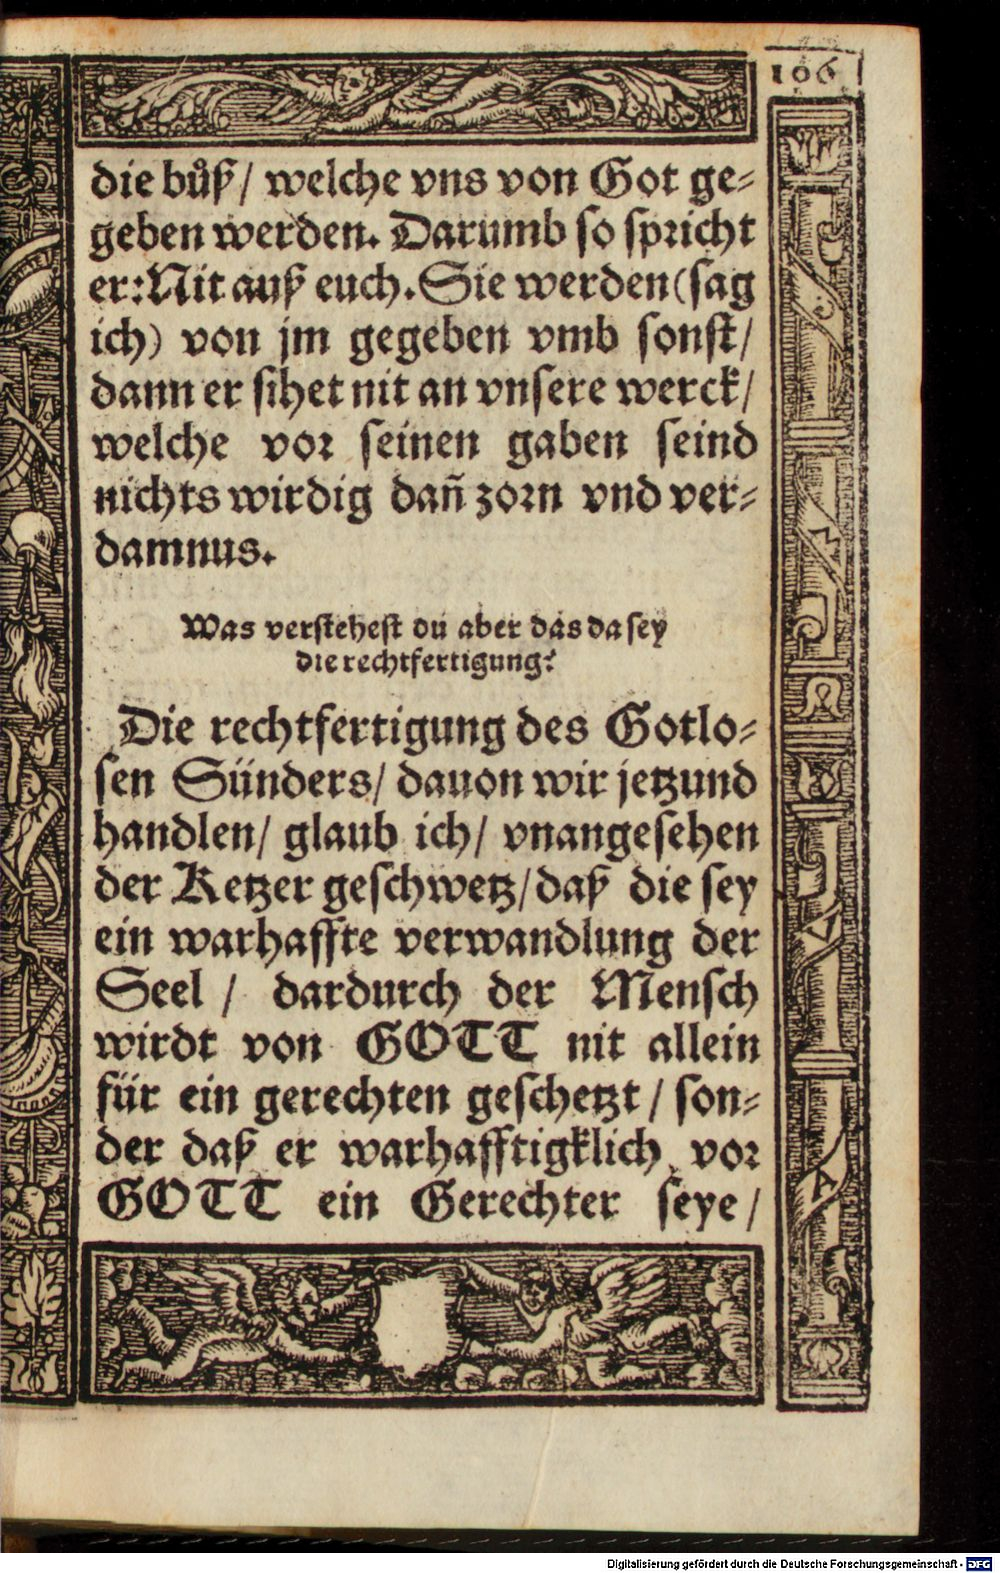 106
die bůß/ welche vns von Got ge-
geben werden. Darumb so spricht
er: Nit auß euch. Sie werden (sag
ich) von jm gegeben vmb sonst/
dann er sihet nit an vnsere werck/
welche vor seinen gaben seind
nichts wirdig dañ zorn vnd ver-
damnus.
Was verstehest du aber das da sey
die rechtfertigung?
Die rechtfertigung des Gotlo-
sen Sünders/ dauon wir jetzund
handlen/ glaub ich/ vnangesehen
der Ketzer geschwetz/ daß die sey
ein warhaffte verwandlung der
Seel / dardurch der Mensch
wirdt von GOTT nit allein
für ein gerechten geschetzt / son-
der daß er warhafftigklich vor
GOTT ein Gerechter seye /
Digitalisierung gefördert durch die Deutsche Forschungsgemeinschaft - DFG